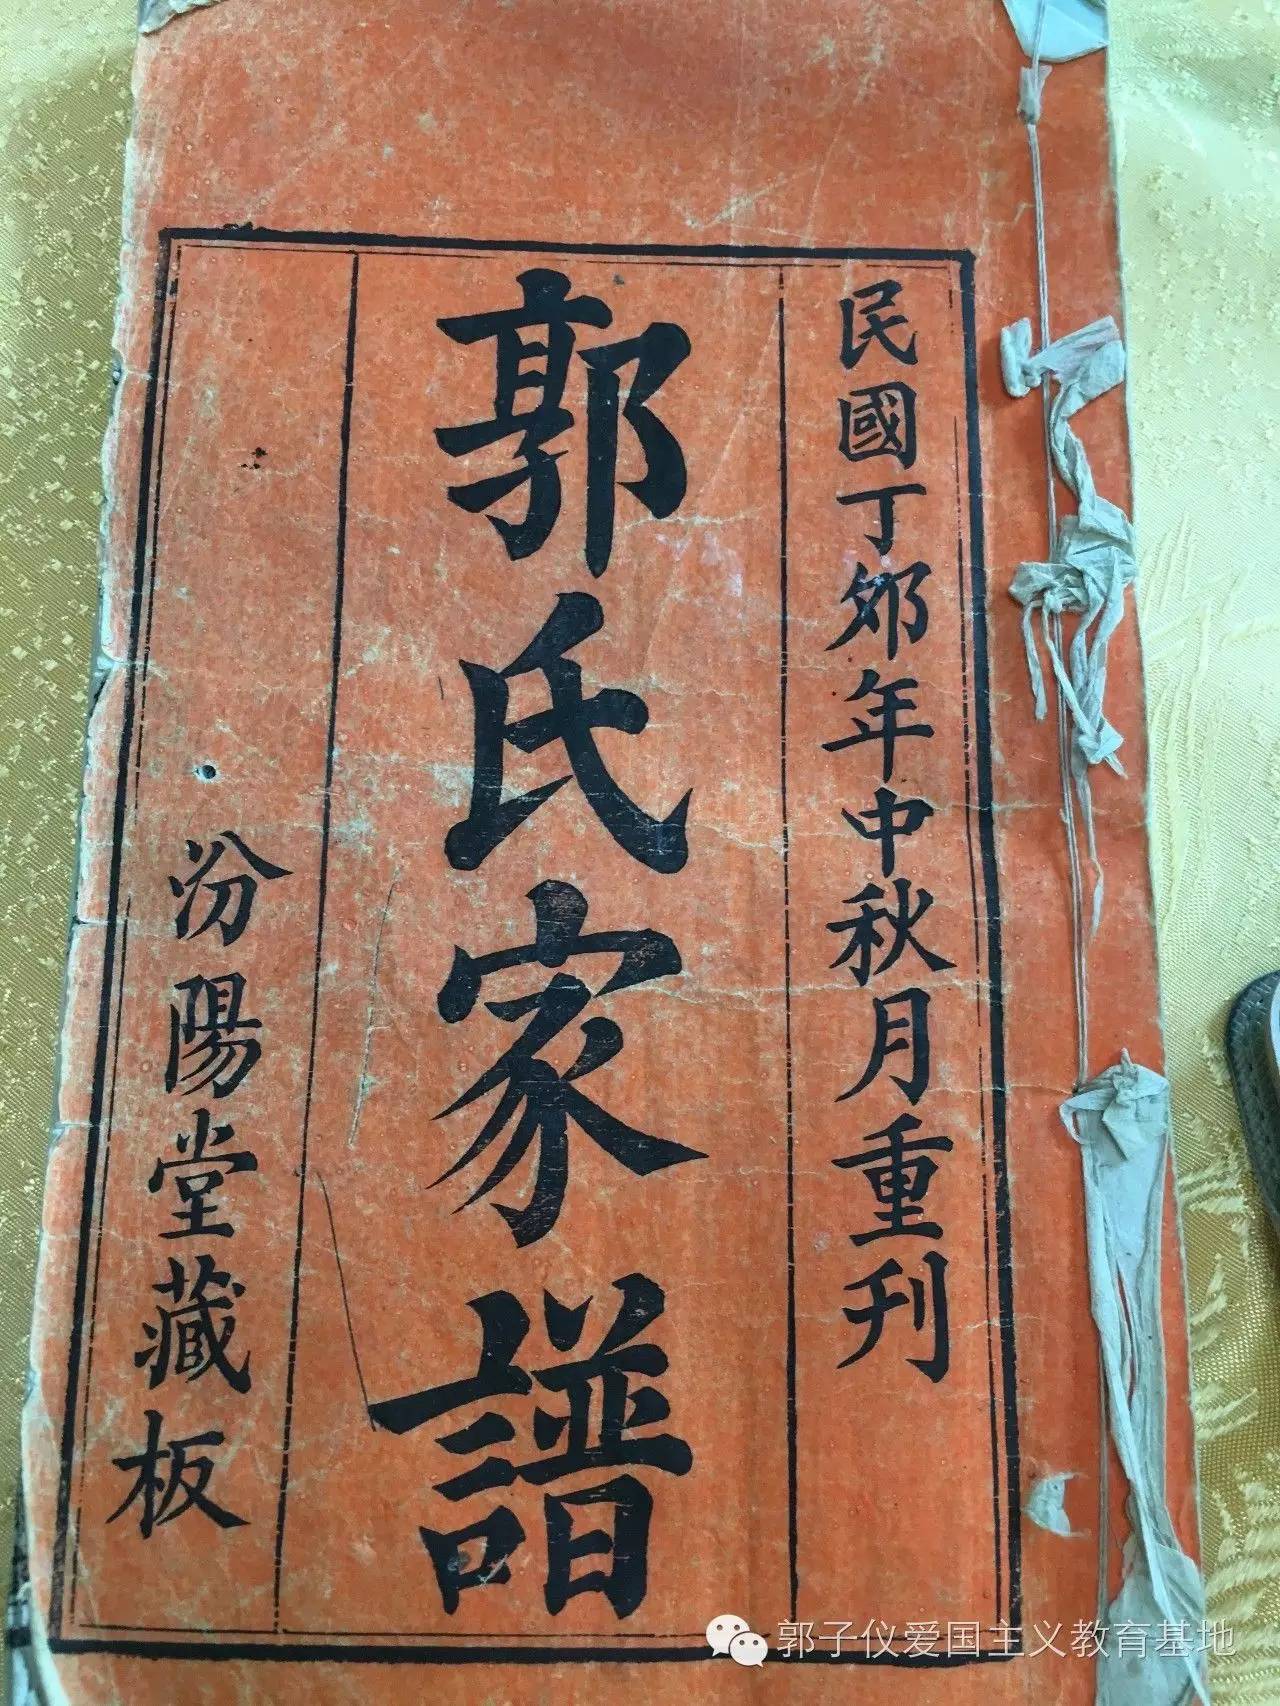 民國丁夘年中秋月重刊
郭氏家譜
汾陽堂藏板
郭子仪爱国主义教育基地